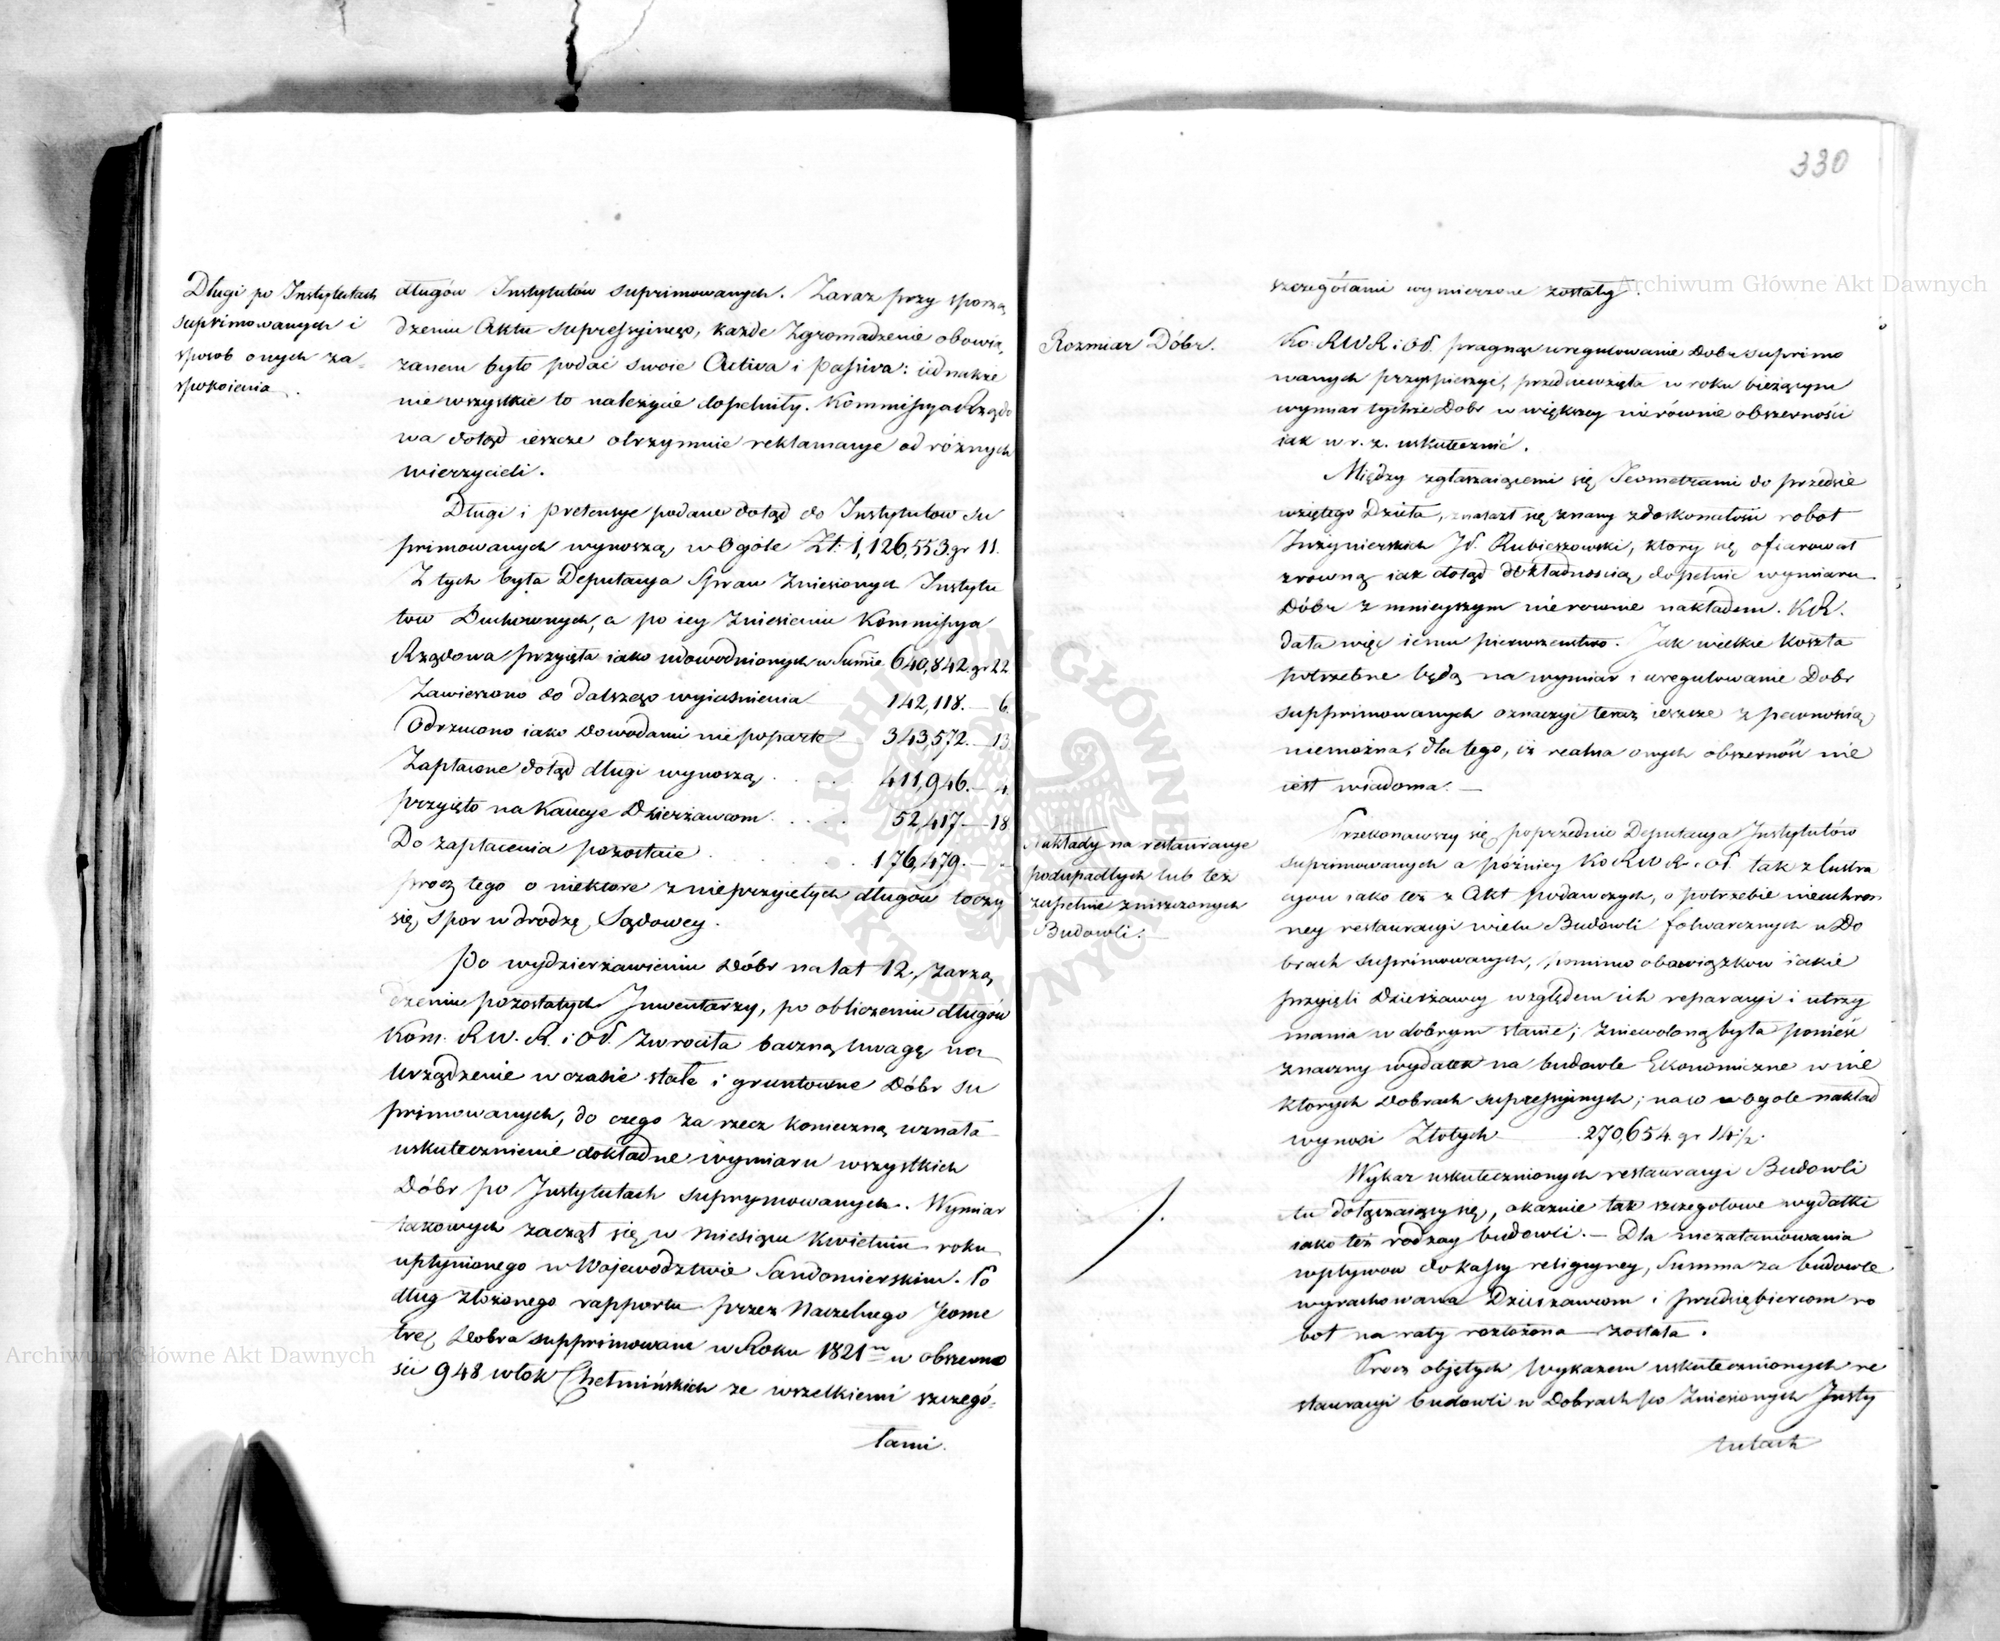 330
Długi po Instytutach
suprimowanych i
sposob onych za=
spokoienia.
długów Instytutów suprimowanych. Zaraz przy sporzą
dzeniu Aktu supressyinego, każde Zgromadzenie obowią
zanem było podać swoie Activa i Passiva: iednakże
nie wszystkie to należycie dopełniły. Kommissya Rządo
wa dotąd ieszcze otrzymuie reklamacye od różnych
wierzycieli.
Długi i pretensye podane dotąd do Instytutow su
primowanych wynoszą w Ogóle Zł: 1,126,553. gr 11.
Z tych była Deputacya Spraw Zniesionych Instytu
tow Duchownych, a po iey Zniesieniu Kommissya
Rządowa przyięła iako udowodnionych w Summie 640,842. gr 22
Zawieszono do dalszego wyiaśnienia 142,118. — 6.
Odrzucono iako dowodami nie poparte 343,572. — 13
Zapłacone dotąd długi wynoszą . . . . 411,946. — 4.
przyięto na Kaucye Dzierżawcom . . . . 52,417. — 18
Do zapłacenia pozostaie . . . . 176,479. —
procz tego o niektore z nieprzyiętych długów toczy
się spor w drodze Sądowey.
Po wydzierżawieniu Dóbr na lat 12, zarzą
dzeniu pozostałych Inwentarzy, po obliczeniu długów
Kom. R. W. R. i O P. zwrociła baczną uwagę na
urządzenie w czasie stałe i gruntowne Dóbr su
primowanych, do czego za rzecz konieczną uznała
uskutecznienie dokładne wymiaru wszystkich
Dóbr po Instytutach suprymowanych. Wymiar
takowych zaczął się w Miesiącu Kwietniu roku
upłynionego w Wojewodztwie Sandomierskim. Po
dług złożonego rapportu przez Naczelnego Jeome
trę Dobra supprimowane w Roku 1821m w obszerno
ści 948 włok Chełmińskich ze wszelkiemi szczegó=
łami.
szczegółami wymierzone zostały.
Rozmiar Dóbr.
Ko: R W R i O P. pragnąc uregulowanie dobr suprimo
wanych przyspieszyć, przedsięwzięła w roku bieżącym
wymiar tychże Dobr w większey nierównie obszerności
iak w r. z. uskutecznić.
Między zgłaszaiącemi się Jeometrami do przedsię
wziętego Dzieła, znalazł się znany z doskonałości robot
Inżynierskich JP. Rubieszowski, ktory się ofiarował
z rowną iak dotąd dokładnością dopełnić wymiaru
Dóbr z mnieyszym nierownie nakładem. K R.
dała więc iemu pierwszeństwo. Jak wielkie koszta
potrzebne będą na wymiar i uregulowanie Dobr
supprimowanych oznaczyć teraz ieszcze z pewnością
niemożna, dla tego, iż realna onych obszerność nie
iest wiadoma. —
Nakłady na restauracye
podupadłych lub też
zupełnie zniszczonych
Budowli. —
Przekonawszy się poprzednio Deputacya Instytutów
suprimowanych a późniey Ko R W R. i O P. tak z lustra
cyow iako też z Akt podawczych, o potrzebie nieuchron
ney restauracyi wielu Budowli folwarcznych w Do
brach suprimowanych, pomimo obowiązkow iakie
przyięli Dzierżawcy względem ich reparacyi i utrzy
mania w dobrym stanie; zniewoloną była ponieść
znaczny wydatek na budowle Ekonomiczne w nie
ktorych Dobrach supressyinych; na co w Ogole nakład
wynosi Złotych — 270,654. gr 14 ½.
Wykaz uskutecznionych restauracyi Budowli
tu dołączaiący się, okazuie tak szczegołowe wydatki
iako też rodzay budowli. — Dla niezatamowania
wpływow do kassy religiyney, Summa za budowle
wyrachowana Dzierżawcom i przedsiębiercom ro
bot na raty rozłożona została.
Procz objętych Wykazem uskutecznionych re
stauracyi budowli w Dobrach po Zniesionych Insty
tutach
Archiwum Główne Akt Dawnych
Archiwum Główne Akt Dawnych